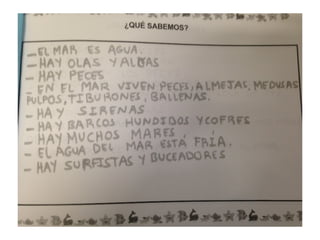 ¿QUÉ SABEMOS?
- EL MAR ES AGUA.
- HAY OLAS Y ALGAS
- HAY PECES
- EN EL MAR VIVEN PECES, ALMEJAS, MEDUSAS
PULPOS, TIBURONES, BALLENAS.
- HAY SIRENAS
- HAY BARCOS HUNDIDOS Y COFRES
- HAY MUCHOS MARES.
- EL AGUA DEL MAR ESTÁ FRÍA.
- HAY SURFISTAS Y BUCEADORES